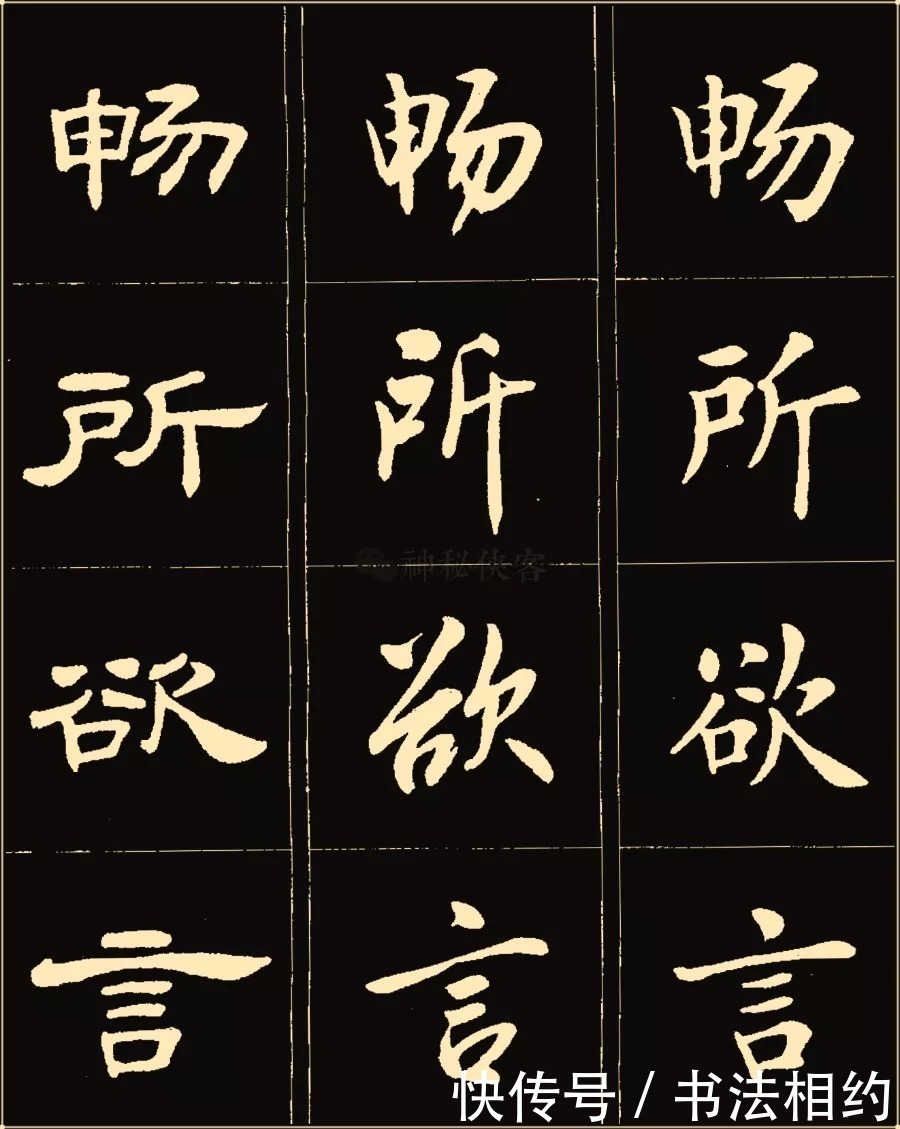 畅所欲言
畅所欲言
畅所欲言
神秘侠客
快传号 / 书法相约